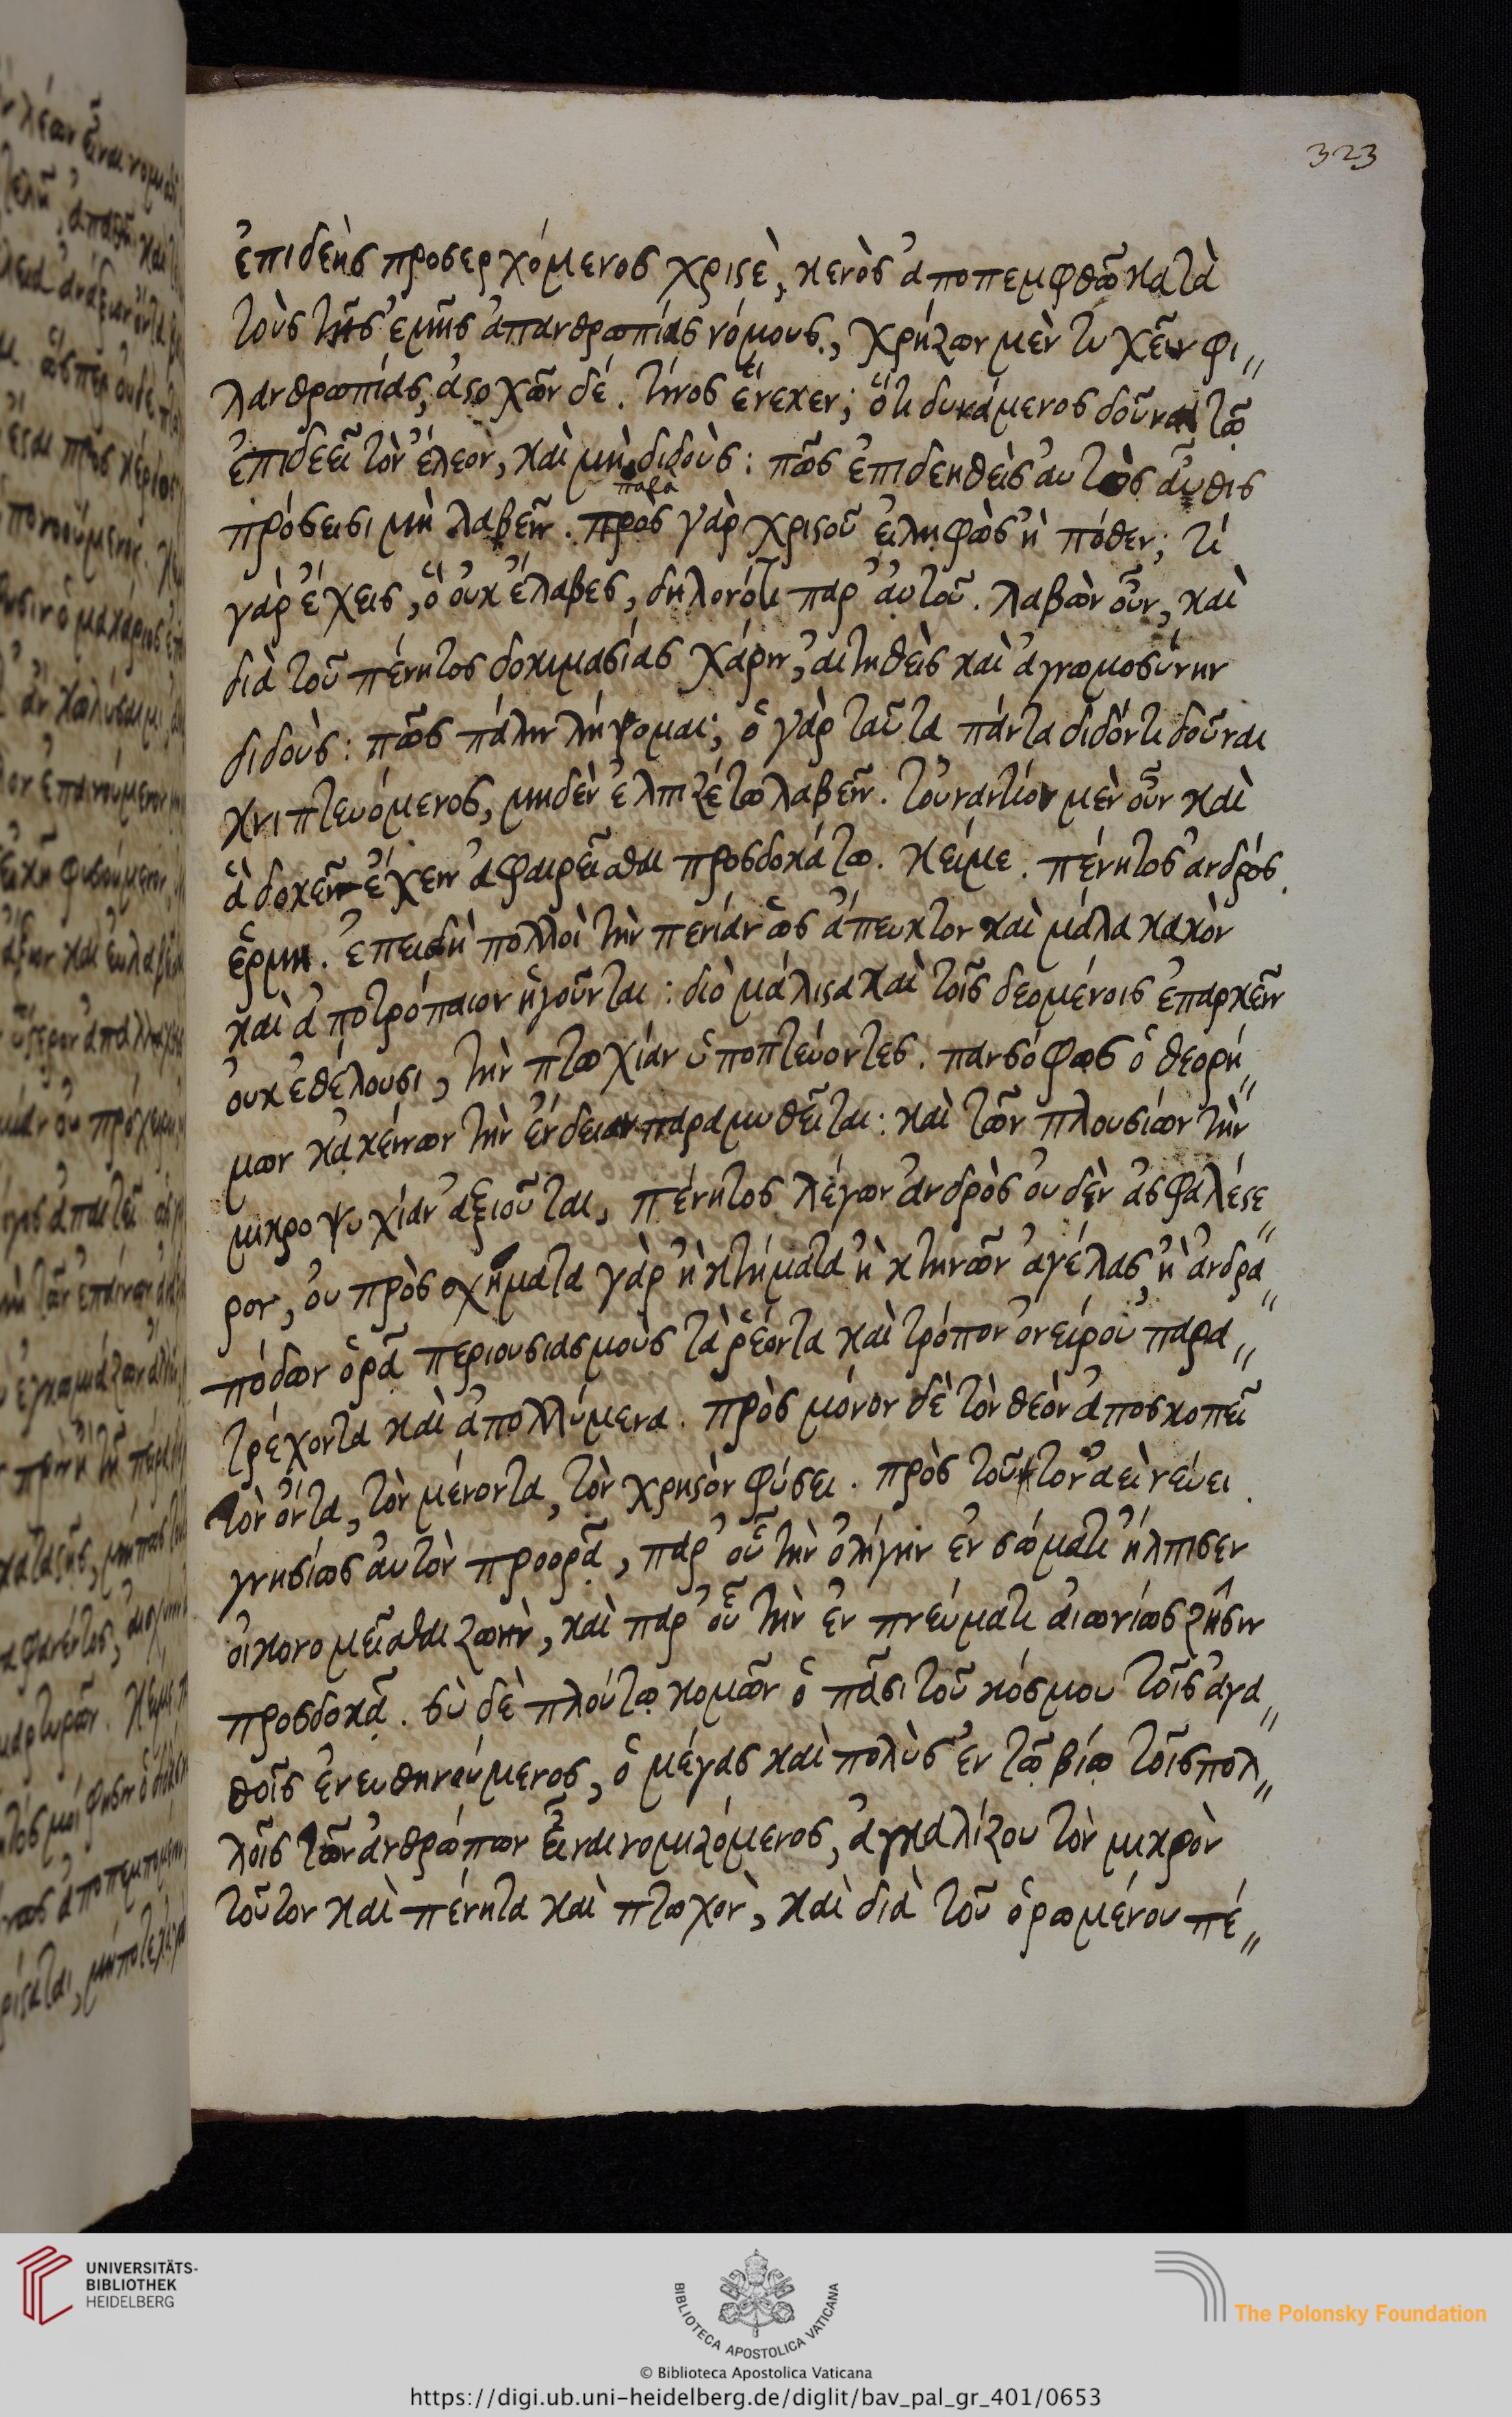 323
ἐπιδεὴς προσερχόμενος χριστὲ, κενὸς ἀποπεμφθῶ κατὰ
τοὺς τῆς ἐμῆς ἀπανθρωπίας νόμους, χρήζων μὲν τυχεῖν φι„
λανθρωπίας, ἀστοχῶν δέ. τίνος ἕνεκεν; ὅτι δυνάμενος δοῦναι τῷ
ἐπιδεεῖ τὸν ἔλεον, καὶ μὴ διδοὺς: πῶς ἐπιδεηθεὶς αὐτὸς αὖθις
παρὰ
πρόσεισι μὴ λαβεῖν. πρὸς γὰρ χριστοῦ εἰληφὼς ἢ πόθεν; τί
γὰρ ἔχεις, ὃ οὐκ ἔλαβες, δηλονότι παρ' αὐτοῦ. λαβὼν οὖν, καὶ
διὰ τοῦ πένητος δοκιμασίας χάριν, αἰτηθεὶς καὶ ἀγνωμοσύνην
διδοὺς: πῶς πάλιν λήψομαι; ὁ γὰρ ταῦτα πάντα διδόντι δοῦναι
κνιπτευόμενος, μηδὲν ἐλπιζέτω λαβεῖν. τοὐναντίον μὲν οὖν καὶ
ἃ δοκεῖν ἔχειν ἀφαιρεῖσθαι προσδοκάτω. κείμε. πένητος ἀνδρός.
ἑρμη. ἐπειδὴ πολλοὶ τὴν πενίαν ὡς ἄπευκτον καὶ μάλα κακὸν
καὶ ἀποτρόπαιον ἡγοῦνται: διὸ μάλιστα καὶ τοῖς δεομένοις ἐπαρκεῖν
οὐκ ἐθέλουσι, τὴν πτωχίαν ὑποπτεύοντες. πανσόφως ὁ θεορή„
μων κἀκείνων τὴν ἔνδειαν παραμυθεῖται: καὶ τῶν πλουσίων τὴν
μικροψυχίαν ἀξιοῦται, πένητος λέγων ἀνδρὸς οὐδὲν ἀσφαλέστε„
ρον, οὐ πρὸς ὀχήματα γὰρ ἢ κτήματα ἢ κτηνῶν ἀγέλας, ἢ ἀνδρα„
πόδων ὁρᾷ περιουσιασμοὺς τὰ ῥέοντα καὶ τρόπον ὀνείρου παρα„
τρέχοντα καὶ ἀπολλύμενα. πρὸς μόνον δὲ τὸν θεὸν ἀποσκοπεῖ
τὸν ὄντα, τὸν μένοντα, τὸν χρηστὸν φύσει. πρὸς τοῦτον ἀεὶ νεύει.
γνησίως αὐτὸν προορᾷ, παρ' οὗ τὴν ὀλίγην ἐν σώματι ἤλπισεν
οἰκονομεῖσθαι ζωὴν, καὶ παρ' οὗ τὴν ἐν πνεύματι αἰωνίως ζῆσιν
προσδοκᾷ. σὺ δὲ πλούτῳ κομῶν ὁ πᾶσι τοῦ κόσμου τοῖς ἀγα„
θοῖς ἐνευθηνούμενος, ὁ μέγας καὶ πολὺς ἐν τῷ βίῳ τοῖς πολ„
λοῖς τῶν ἀνθρώπων εἶναι νομιζόμενος, ἀγκαλίζου τὸν μικρὸν
τοῦτον καὶ πένητα καὶ πτωχὸν, καὶ διὰ τοῦ ὁρωμένου πέ„
UNIVERSITÄTS-
BIBLIOTHEK
HEIDELBERG
BIBLIOTECA APOSTOLICA VATICANA
The Polonsky Foundation
© Biblioteca Apostolica Vaticana
https://digi.ub.uni-heidelberg.de/diglit/bav_pal_gr_401/0653